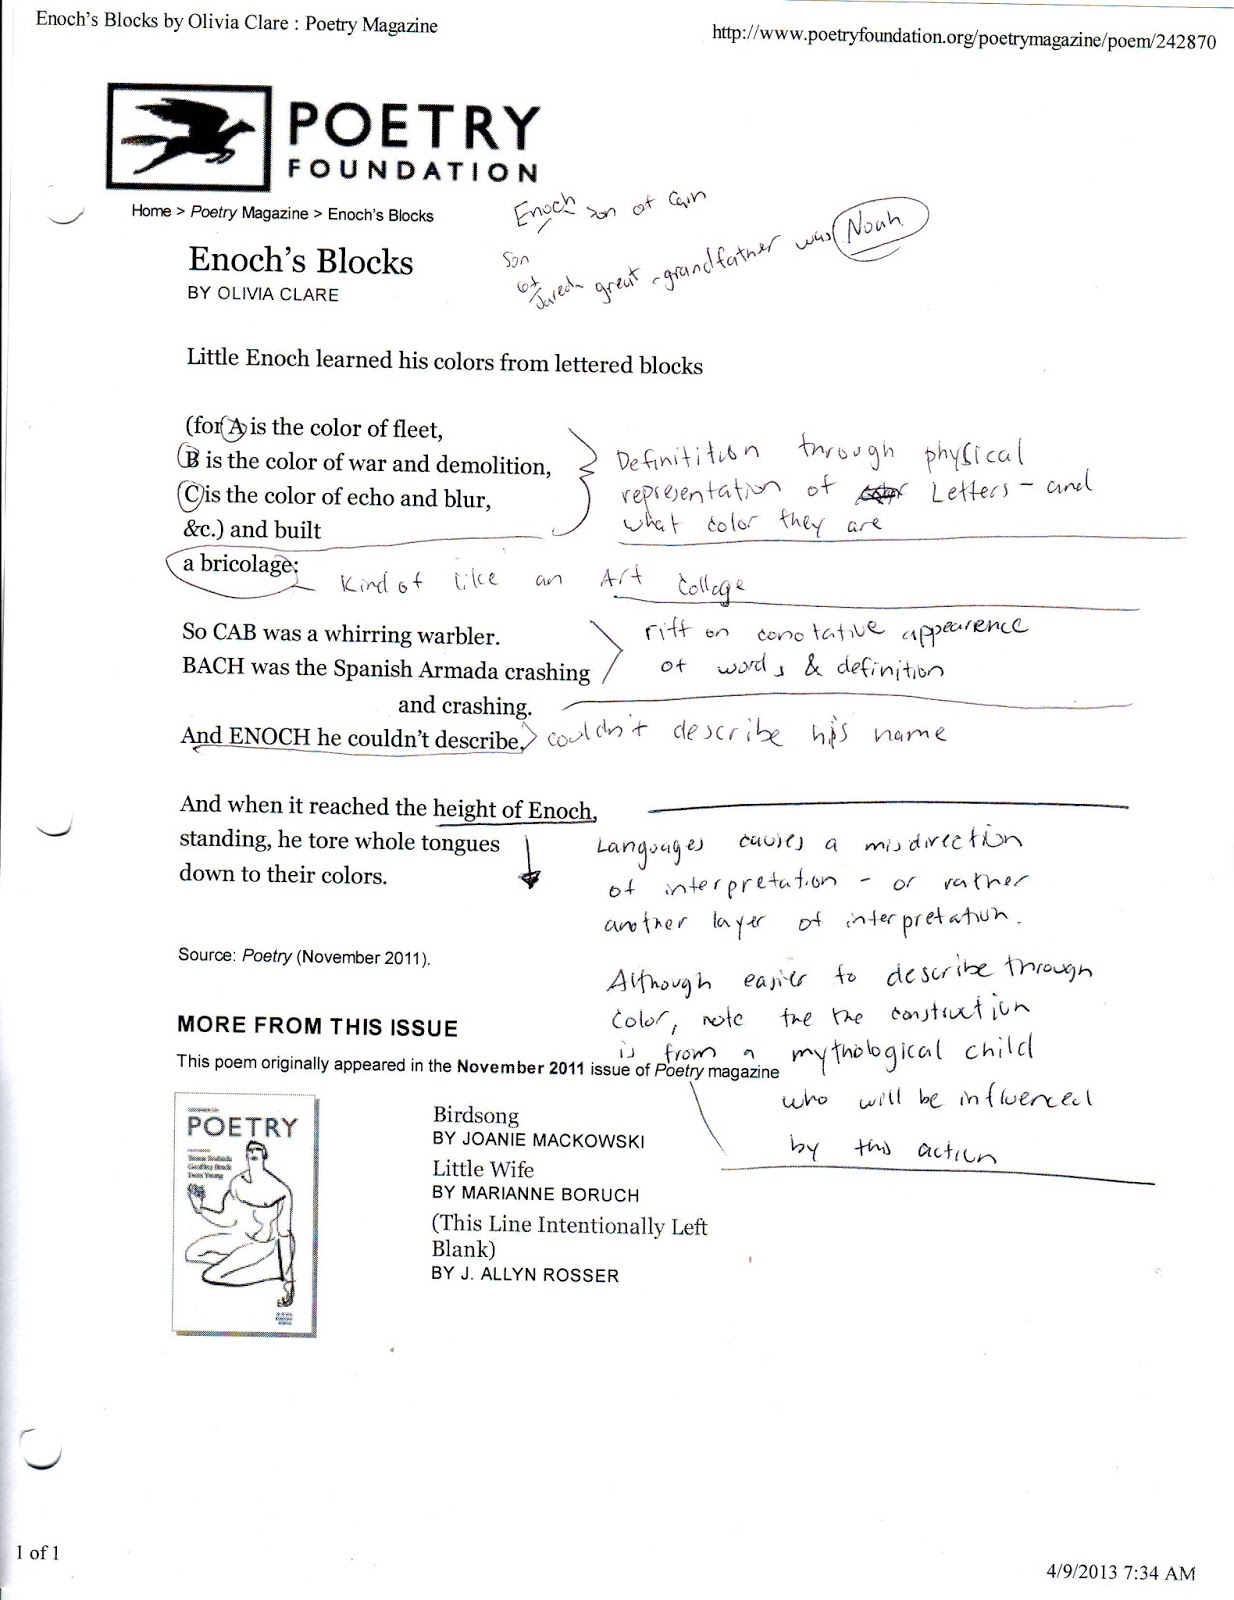 Enoch's Blocks by Olivia Clare : Poetry Magazine
http://www.poetryfoundation.org/poetrymagazine/poem/242870
POETRY
FOUNDATION
Home > Poetry Magazine > Enoch's Blocks
Enoch son of Cain
Son of Jared great-grandfather was Noah
Enoch's Blocks
BY OLIVIA CLARE
Little Enoch learned his colors from lettered blocks
(for A is the color of fleet,
B is the color of war and demolition,
C is the color of echo and blur,
&c.) and built
Definitition through physical
representation of Letters - and
what color they are
a bricolage:
Kind of like an Art Collage
So CAB was a whirring warbler.
BACH was the Spanish Armada crashing
and crashing.
riff on conotative appearence
of words & definition
And ENOCH he couldn't describe.
couldn't describe his name
And when it reached the height of Enoch,
standing, he tore whole tongues
down to their colors.
Languages causes a misdirection
of interpretation - or rather
another layer of interpretation.
Source: Poetry (November 2011).
Although easier to describe through
Color, note the the construction
is from a mythological child
who will be influenced
by this action
MORE FROM THIS ISSUE
This poem originally appeared in the November 2011 issue of Poetry magazine
POETRY
Birdsong
BY JOANIE MACKOWSKI
Little Wife
BY MARIANNE BORUCH
(This Line Intentionally Left
Blank)
BY J. ALLYN ROSSER
1 of 1
4/9/2013 7:34 AM